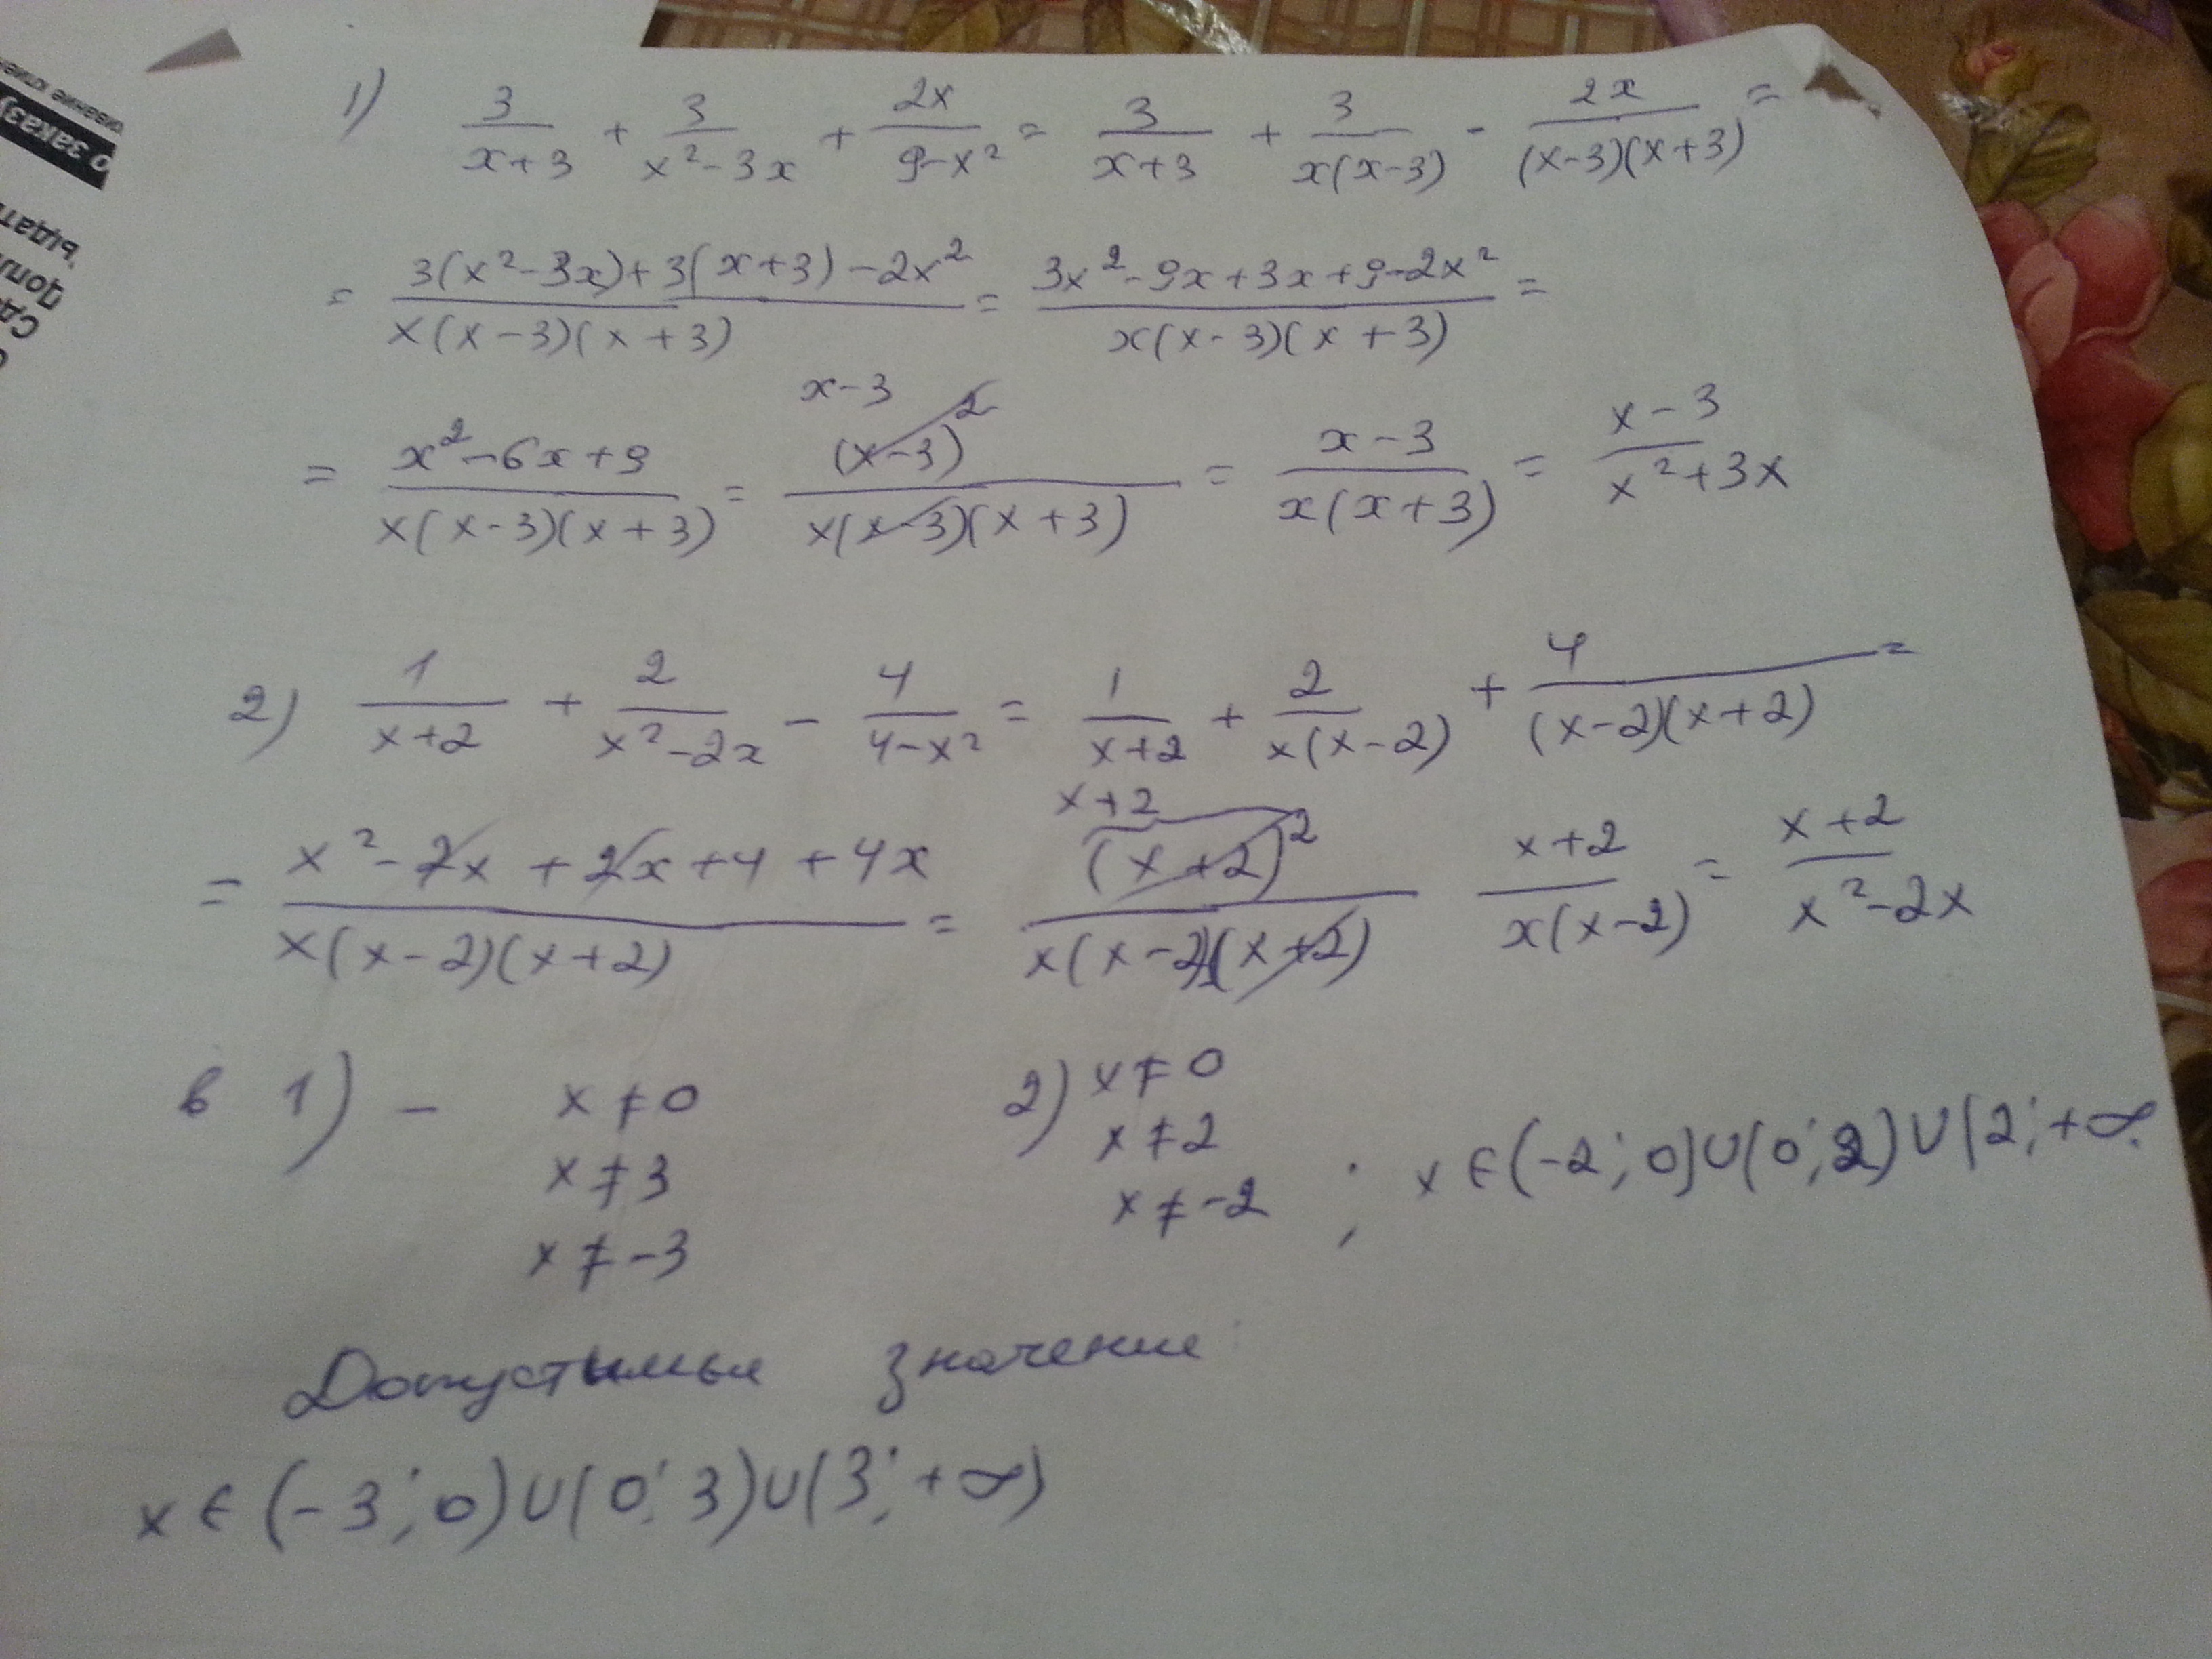 1) 3/(x+3) + 3/(x²-3x) + 2x/(9-x²) = 3/(x+3) + 3/(x(x-3)) - 2x/((x-3)(x+3)) =
= (3(x²-3x)+3(x+3)-2x²)/(x(x-3)(x+3)) = (3x²-9x+3x+9-2x²)/(x(x-3)(x+3)) =
x-3
= (x²-6x+9)/(x(x-3)(x+3)) = (x-3)²/(x(x-3)(x+3)) = (x-3)/(x(x+3)) = (x-3)/(x²+3x)
2) 1/(x+2) + 2/(x²-2x) - 4/(4-x²) = 1/(x+2) + 2/(x(x-2)) + 4/((x-2)(x+2)) =
x+2
= (x²-2x+2x+4+4x)/(x(x-2)(x+2)) = (x+2)²/(x(x-2)(x+2)) (x+2)/(x(x-2)) = (x+2)/(x²-2x)
в 1) - x≠0
x≠3
x≠-3
2) x≠0
x≠2
x≠-2 ; x∈(-2;0)∪(0;2)∪(2;+∞
Допустымые значение:
x∈(-3;0)∪(0;3)∪(3;+∞)
о заказу
ыдать